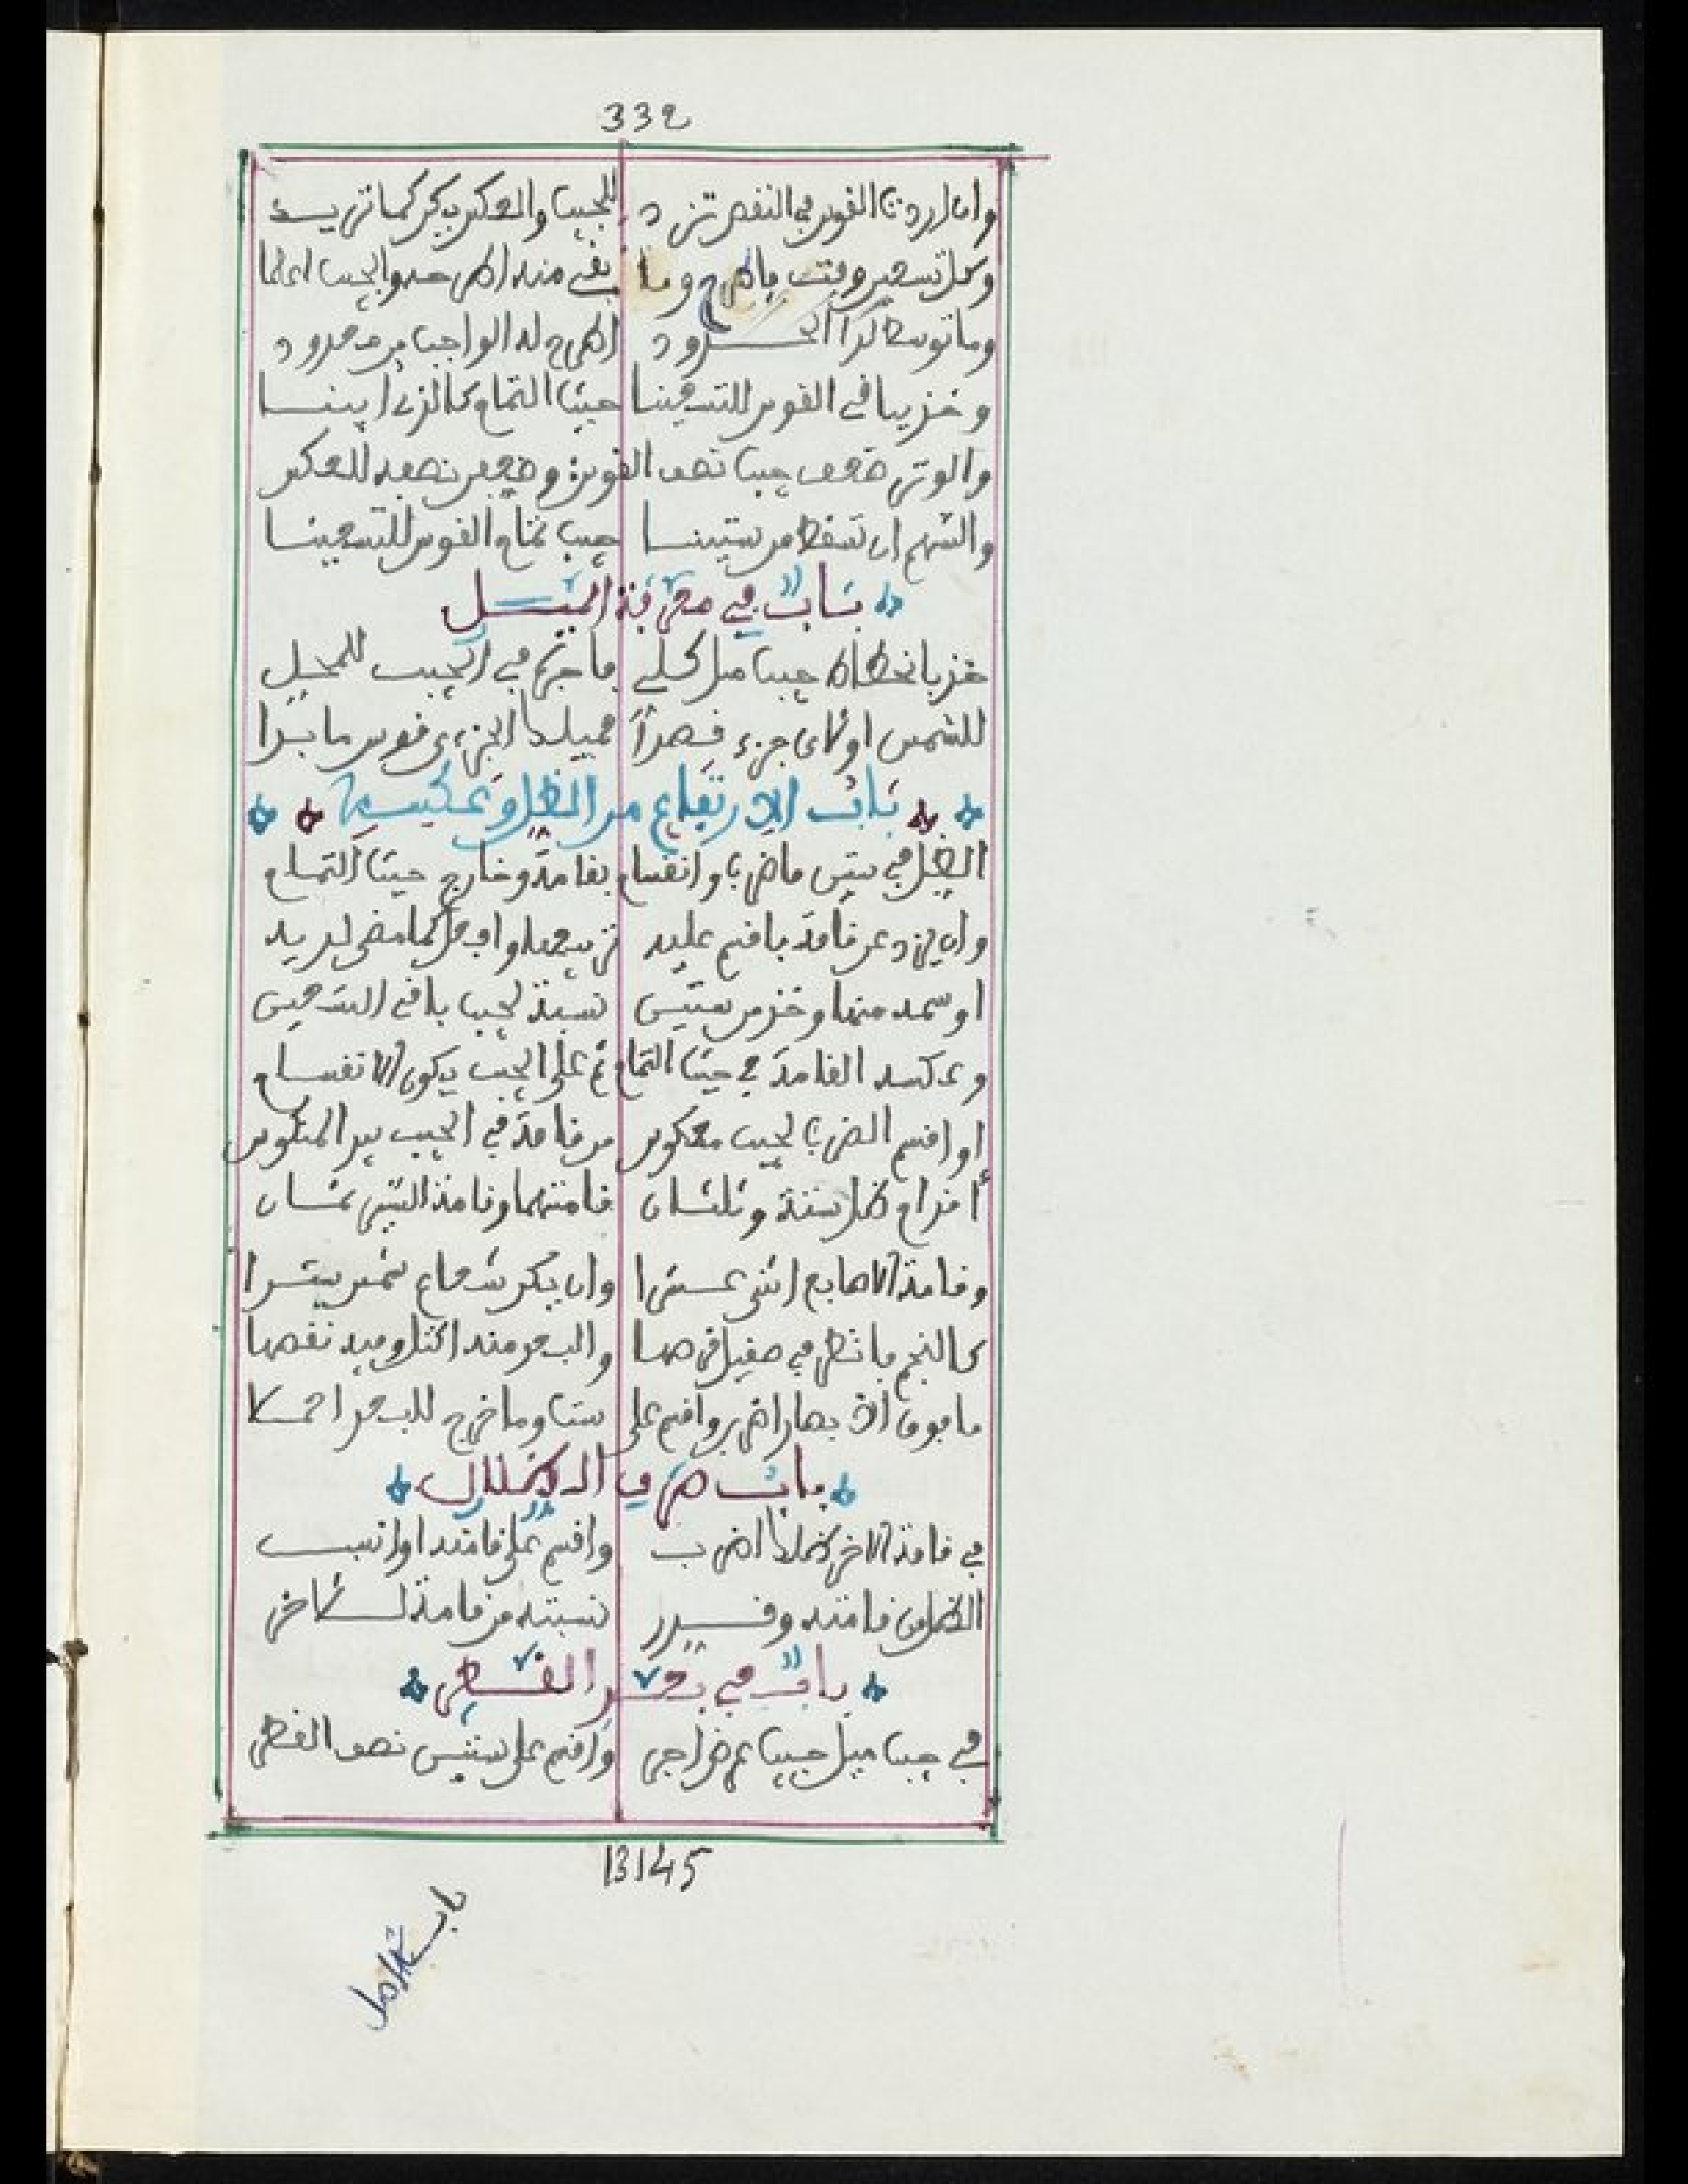 332
وان اردت القوس في النقص تزد للجيب والعكس بكر كما تريد
وكل تسعين وقت بالطرح وما بقي منه اطرحه والجيب اعلما
وما توسط كذا الحدود اطرح له الواجب من محدود
وخذ بباقي القوس للتسعينا جيب التمام كالذي ابينا
والوتر ضعف جيب نصف القوس وضعف نصفه للعكس
والسهم ان تسقط من ستينا جيب تمام القوس للتسعينا
باب في معرفة الميل
خذ بانحطاط جيب ميل كلي فاضربه في الجيب للمحل
للشمس او لاي جزء قصدا فميل ذا الجزء قوس ما بدا
باب الارتفاع من الظل وعكسه
الظل في ستين فاضرب وانقسام بقامة وخارج جيب التمام
وان يزد عن قامة فاقسم عليه تربيعها وافعل كما مضى لديه
او سمه منها وخذ من ستين نسبة لجيب باقي التسعين
وعكسه القامة في جيب التمام ثم على الجيب يكون الانقسام
او اقسم الضرب لجيب معكوس من قامة في الجيب بين المنكوس
أقدام ظل ستة وثلثان قامتها وقامة الستين ثمان
وقامة الاصابع اثنى عشرا وان يكن شعاع شمس سترا
كالنجم فانظر في صقيل قرصها والبعد منه اكثل وفيه نقصها
ما فوق الابصار اضرب واقسم على ست وما خرج للبعد احملا
باب صرف الاظلال
في قامة الاخر ظلا اضرب واقسم على قامته او انسب
الاظل من قامته وقدر نسبته من قامة للاخر
باب في بعد القطر
في جيب ميل جيب عرض اجر واقسم على ستين نصف القطر
13145
باب